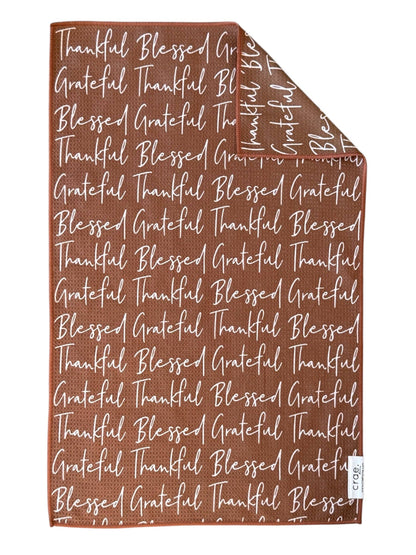 Thankful Blessed Gra
Grateful Thankful Bl
Blessed Grateful Tha
Thankful Blessed Gr
Thankful Bless
Grateful
Blesse
Grateful Thankful Blessed Grateful
Blessed Grateful Thankful Blessed
Thankful Blessed Grateful Thankful
Grateful Thankful Blessed Grateful
Blessed Grateful Thankful Blessed
Thankful Blessed Grateful Thankful
Grateful Thankful Blessed Grateful
Thankful Blessed Grateful Thankful
Grateful Thankful Blessed
Blessed Grateful Thankful Blessed
crae.